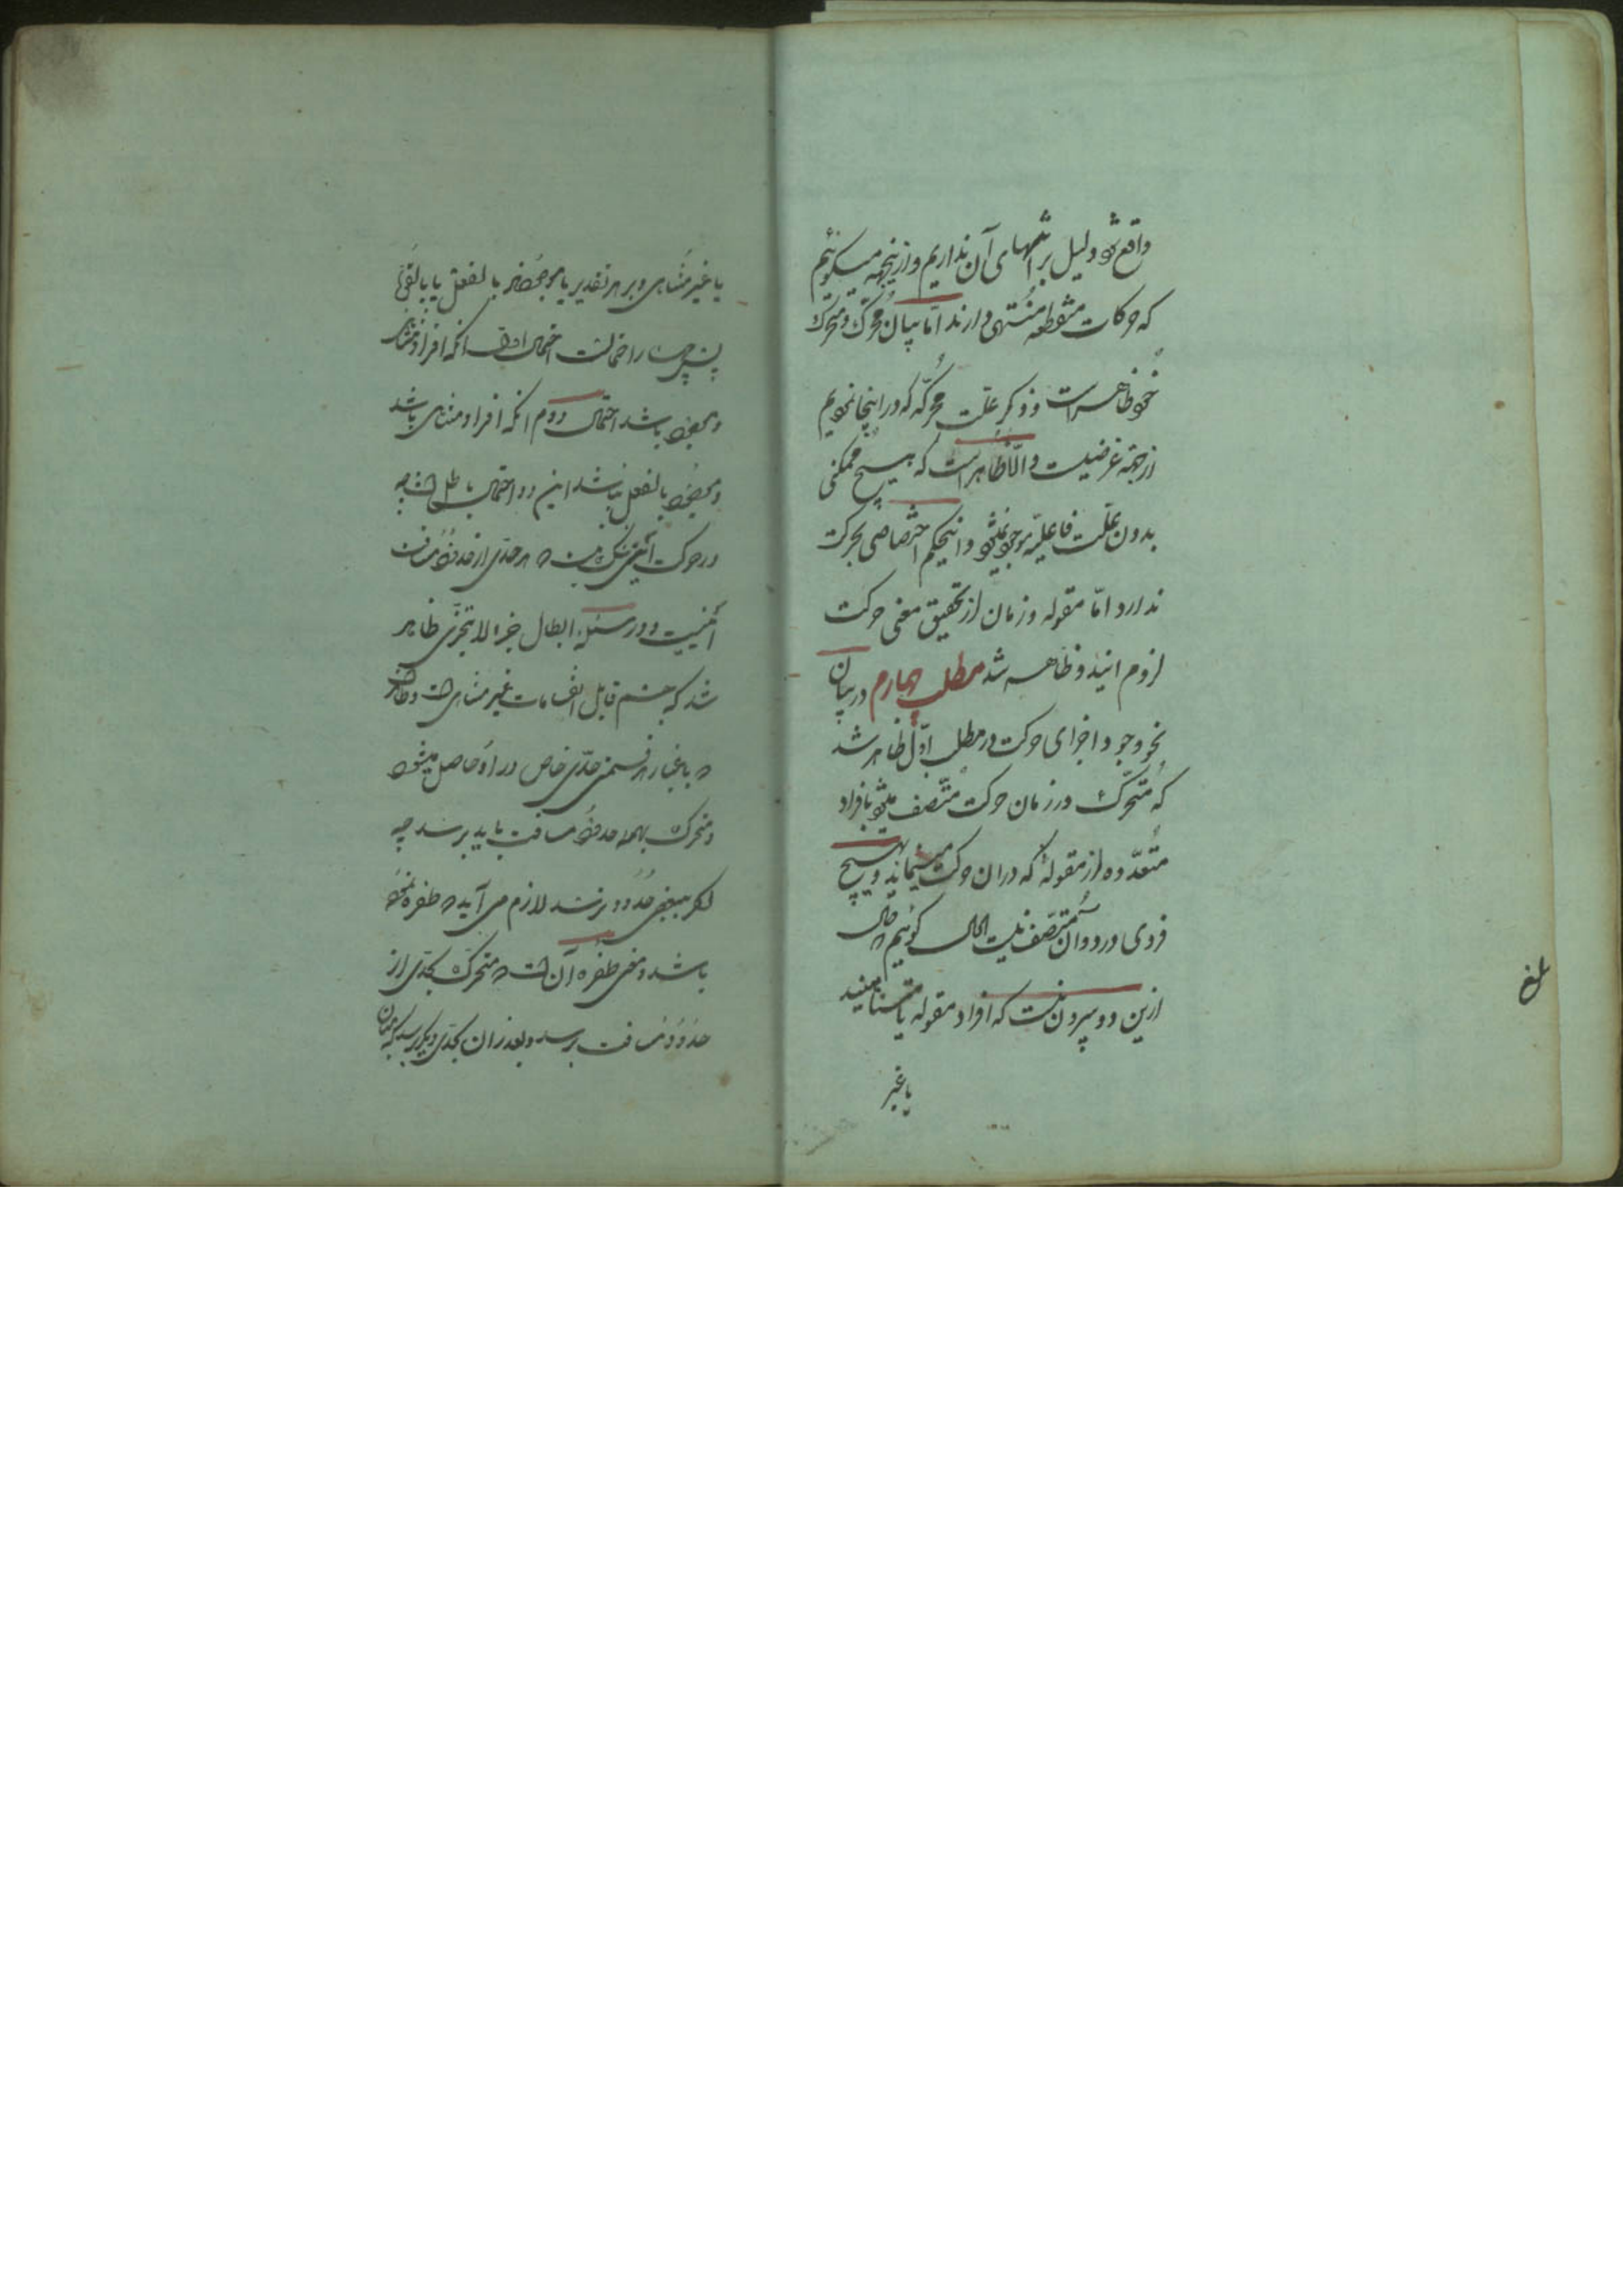 واقع شود دلیل بر انتهای آن نداریم و ازینجهه میگوئیم
که حرکات منقطعه منتهی دارند اما بیان محرک و متحرک
خود ظاهر است و ذکر علت محرکه که در اینجا نمودیم
از جهة غرضیست و الا ظاهر است که هیچ ممکنی
بدون علت فاعلیه موجود نمیشود و اینحکم اختصاصی بحرکت
ندارد اما مقوله و زمان از تحقیق معنی حرکت
لزوم ایندو ظاهر شد مطلب چهارم در بیان
نحو وجود اجزای حرکت در مطلب اول ظاهر شد
که متحرک در زمان حرکت متصف میشود بافراد
متعدده از مقوله که در ان حرکت مینماید و بهیچ
فردی در دو آن متصف نیست الحال گوئیم که حال
ازین دو بیرون نیست که افراد مقوله یا متناهیند
یا غیر
بلغ
یا غیر متناهی و بر هر تقدیر یا موجودند بالفعل یا بالقوه
پس چهار احتمالست احتمال اول انکه افراد متناهی
و موجود باشد احتمال دوم انکه افراد متناهی باشد
و موجود بالفعل نباشد این دو احتمال باطل است چه
در حرکت اینی شک نیست که هر حدی از حدود مسافت
اینیست و در مسئله ابطال جزء لا یتجزی ظاهر
شد که جسم قابل انقسامات غیر متناهی است
که باعتبار هر قسمتی حدی خاص در او حاصل میشود
و متحرک بهمه حدود مسافت باید برسد چه
اگر ببعضی حدود نرسد لازم می آید که طفره نموده
باشد و معنی طفره آن است که متحرک بحدی از
حدود مسافت برسد و بعد از ان بحدی دیگر برسد که میان